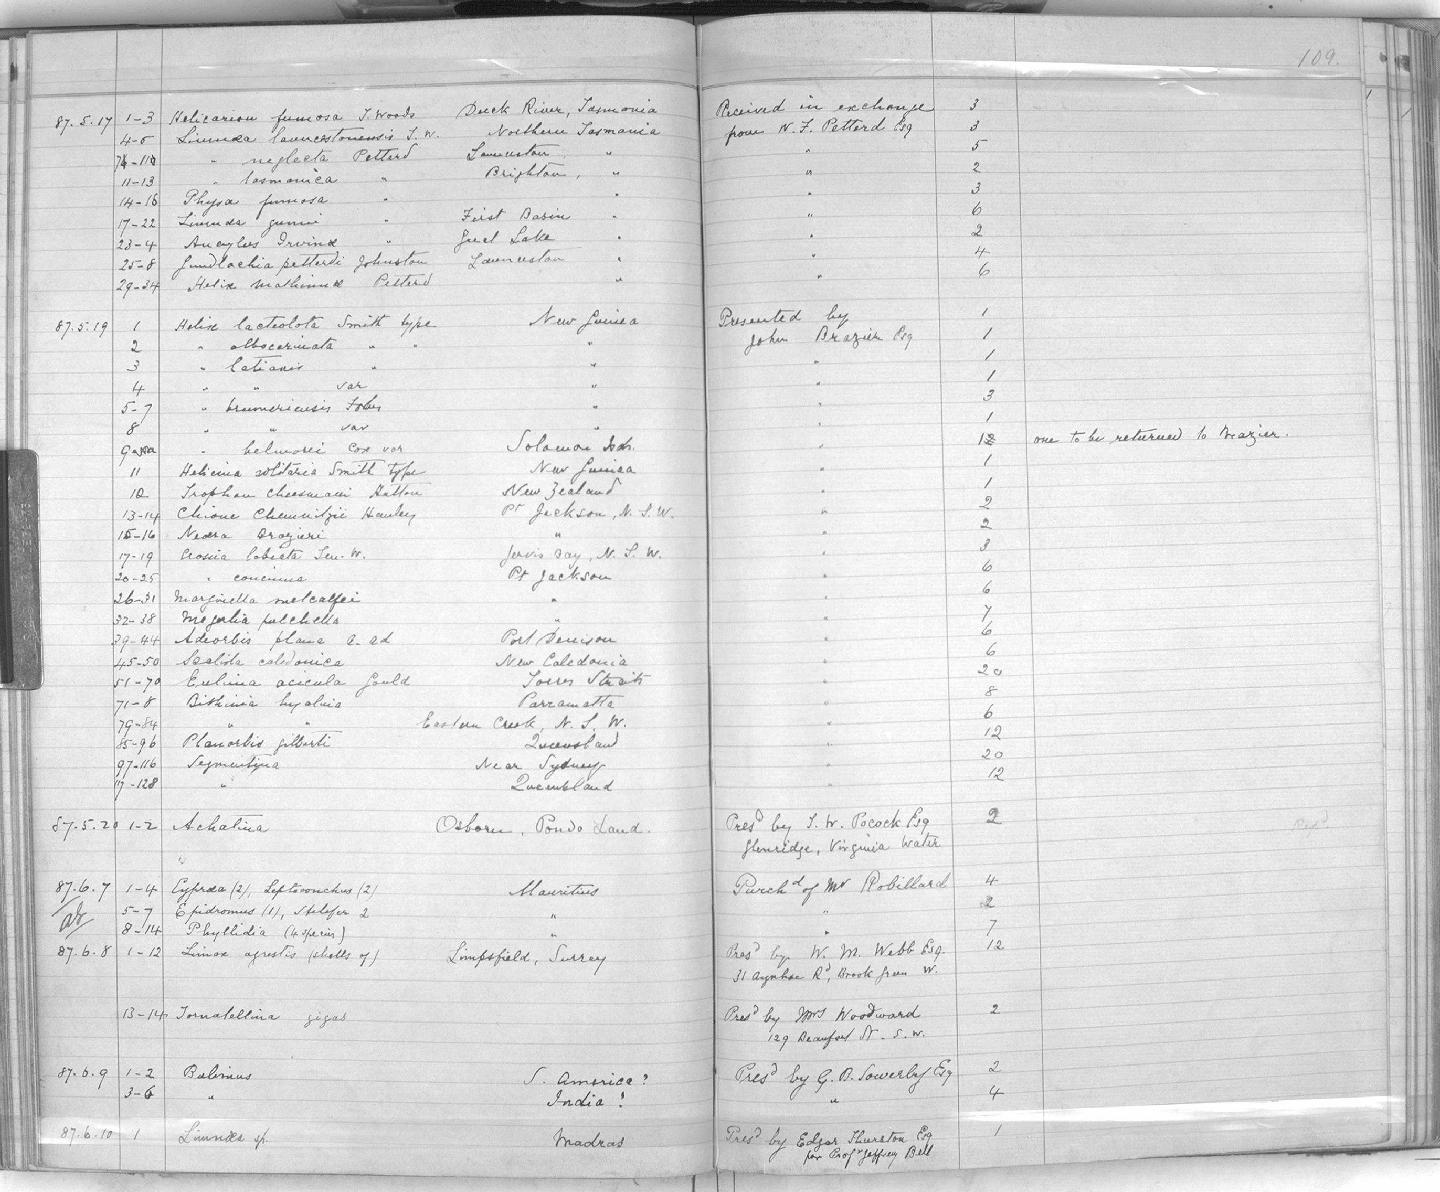 109.
87.5.17 1-3 Helicarion fumosa T. Woods Duck River, Tasmania Received in exchange 3
4-6 Limnæa launcestonensis T. W. Northern Tasmania from W. F. Petterd Esq 3
" neglecta Petterd Launceston, " " 5
11-13 " tasmanica " Brighton, " " 2
14-16 Physa fumosa " " " 3
17-22 Limnæa gunni " First Basin " " 6
23-4 Ancylus Irvinæ " Lake " " 2
25-8 Gundlachia petterdi Johnston Launceston " " 4
29-34 Helix Petterd " " 6
87.5.19 1 Helix lacteolota Smith type New Guinea Presented by 1
2 " " " " John Brazier Esq 1
3 " latiaxis " " " 1
4 " " var " " 1
5-7 " brumeriensis Forbes " " 3
8 " " var " " 1
" belmorei Cox var Solomon Isds. " 12 one to be returned to Brazier.
11 Helicina solitaria Smith type New Guinea " 1
12 Trophon cheesmani Hutton New Zealand " 1
13-14 Chione Chemnitzii Hanley Pt Jackson, N. S. W. " 2
15-16 Neæra brazieri " " 2
17-19 Crossea labiata Ten. W. Jervis Bay, N. S. W. " 3
20-25 " concinna Pt Jackson " 6
26-31 Marginella metcalfei " " 6
32-38 Megalia pulchella " " 7
39-44 Adeorbis plana A. ad Port Denison " 6
45-50 Scaliola caledonica New Caledonia " 6
51-70 Eulima acicula Gould Torres Straits " 20
71-8 Bithinia hyalina Parramatta " 8
79-84 " " Eastern Creek, N. S. W. " 6
85-96 Planorbis gilberti Queensland " 12
97-116 Segmentina Near Sydney " 20
117-128 " Queensland " 12
87.5.20 1-2 Achatina Osborn, Pondo Land. Presd by T. W. Pocock Esq 2
" Glenridge, Virginia Water
87.6.7 1-4 Cypræa (2), Leptoconchus (2) Mauritius Purchd of Mr Robillard 4
5-7 Epidromus (1), Stilifer 2 " " 2
8-14 Phyllidia (4 species) " " 7
87.6.8 1-12 Limax agrestis (shells of) Limpsfield, Surrey Presd by W. M. Webb Esq. 12
31 Aynhoe Rd, Brook Green W.
13-14 Tornatellina gigas Presd by Mrs Woodward 2
129 Beaufort St. S. W.
87.6.9 1-2 Bulimus S. America? Presd by G. B. Sowerby Esq 2
3-6 " India? " 4
87.6.10 1 Limnæa sp. Madras Presd by Edgar Thurston Esq 1
per Profr Jeffrey Bell